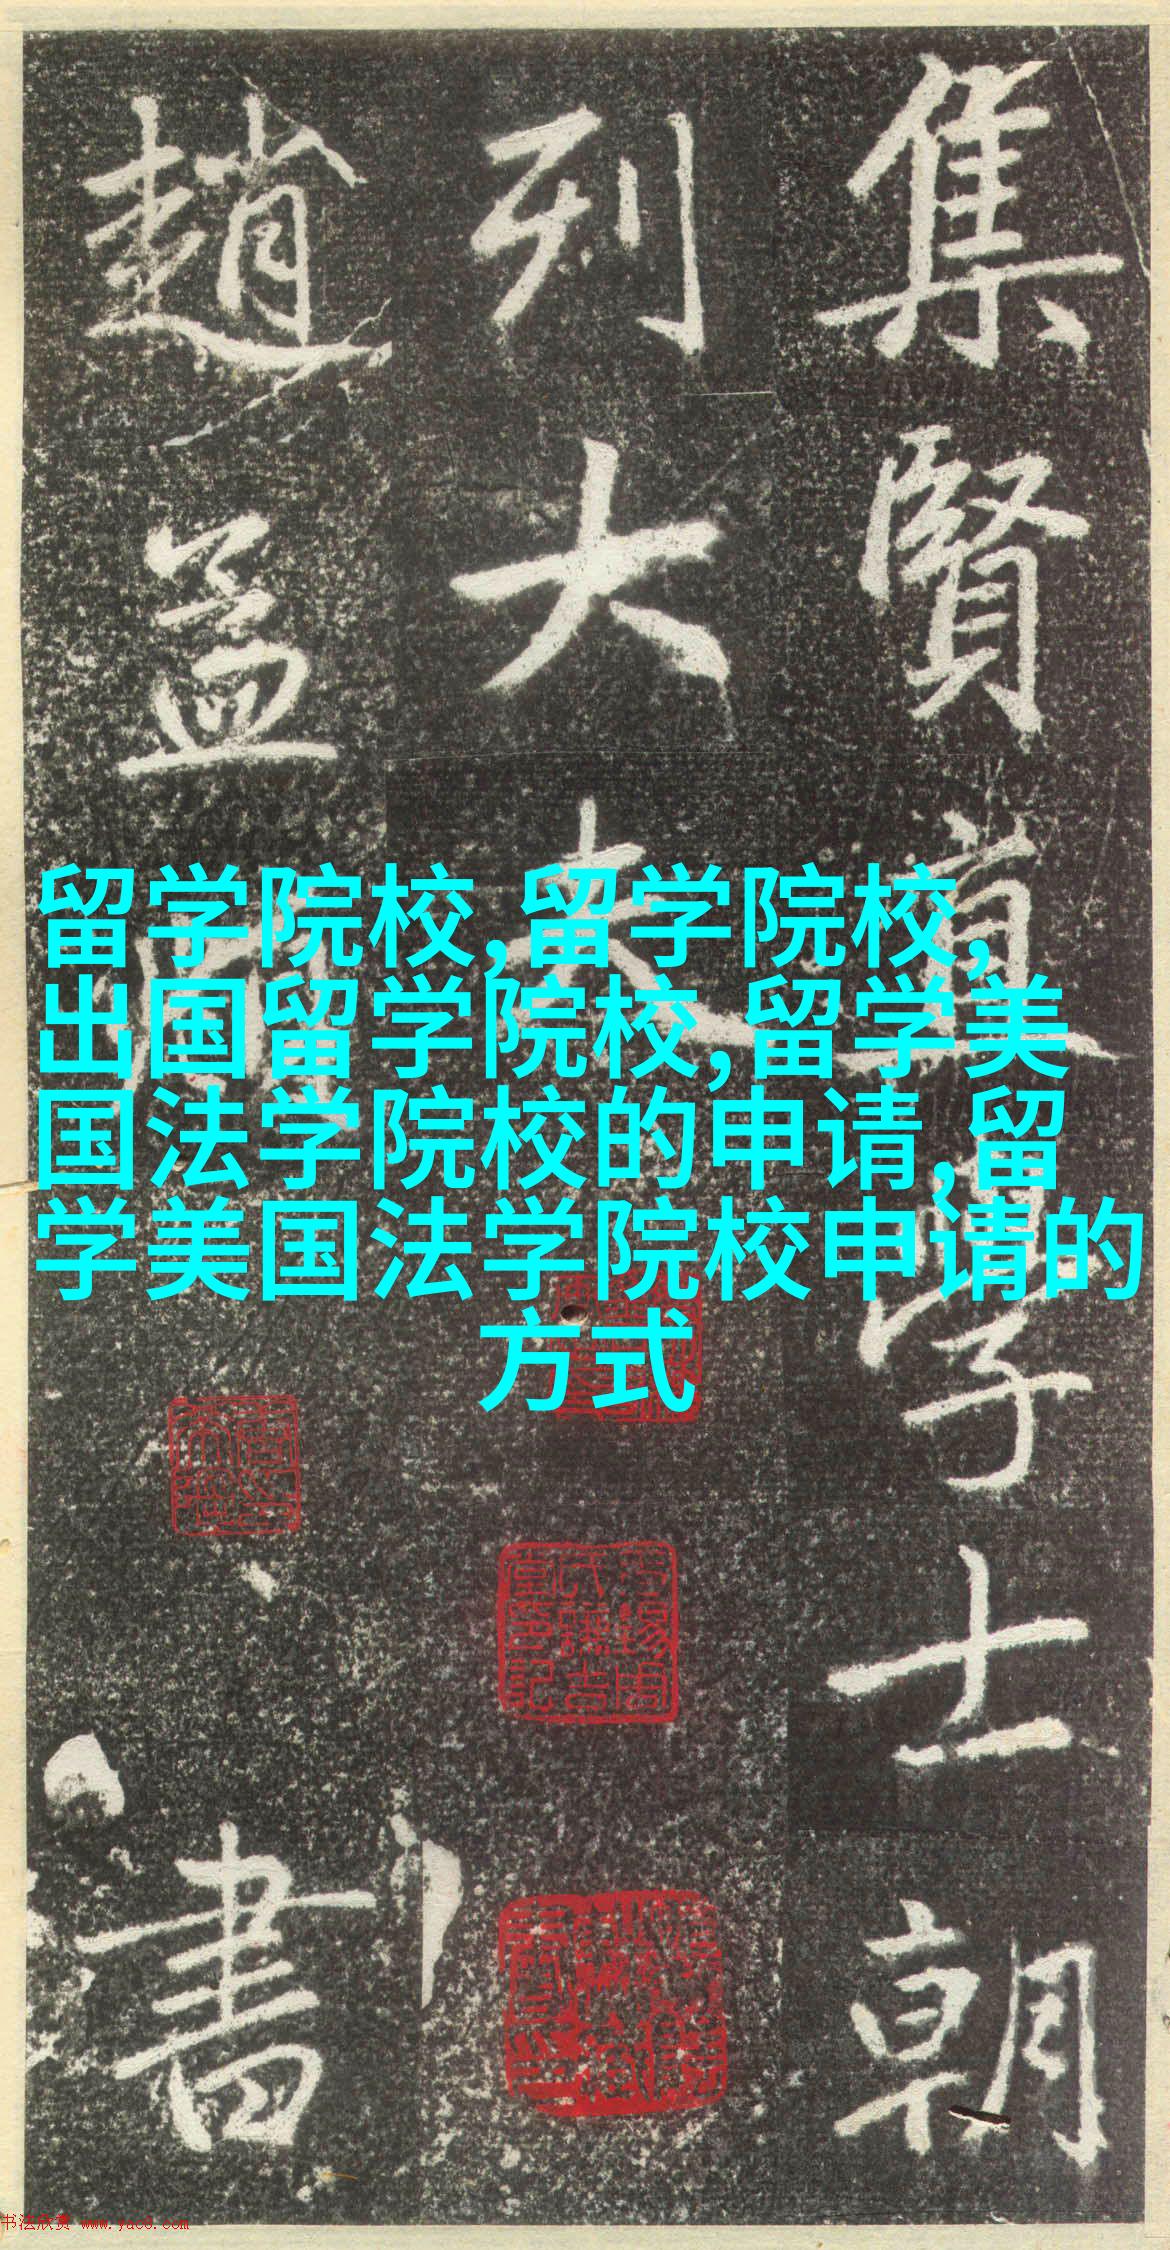 集賢直學士朝
列大夫
趙孟頫書
留学院校,留学院校,
出国留学院校,留学美
国法学院校的申请,留
学美国法学院校申请的
方式
书法欣赏 www.yac8.com